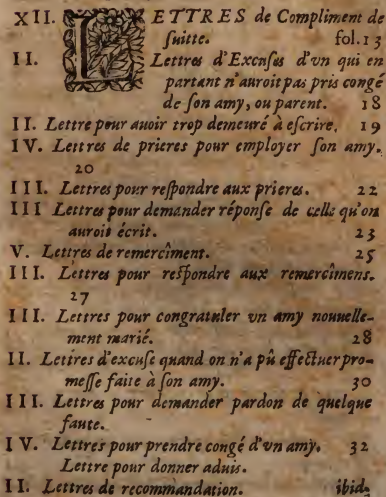 XII. LETTRES de Compliment de
suitte. fol.13
II. Lettres d'Excuses d'vn qui en
partant n'auroit pas pris congé
de son amy, ou parent. 18
II. Lettre pour auoir trop demeuré à escrire. 19
IV. Lettres de prieres pour employer son amy.
20
III. Lettres pour respondre aux prieres. 22
III Lettres pour demander réponse de celle qu'on
auroit écrit. 23
V. Lettres de remercîment. 25
III. Lettres pour respondre aux remercîmens.
27
III. Lettres pour congratuler vn amy nouuelle-
ment marié. 28
II. Lettres d'excuse quand on n'a pû effectuer pro-
messe faite à son amy. 30
III. Lettres pour demander pardon de quelque
faute.
IV. Lettres pour prendre congé d'vn amy. 32
Lettre pour donner aduis.
II. Lettres de recommandation. ibid.